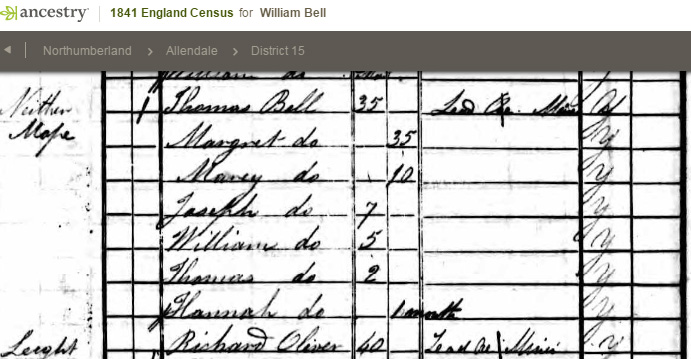 ancestry 1841 England Census for William Bell
Northumberland > Allendale > District 15
William do
Neither 1 Thomas Bell 35 Lead Ore Y
Margret do 35 Y
do 10 Y
Joseph do 7 Y
William do 5 Y
Thomas do 2 Y
Hannah do 1 month Y
Richard Oliver 40 Lead Ore Y